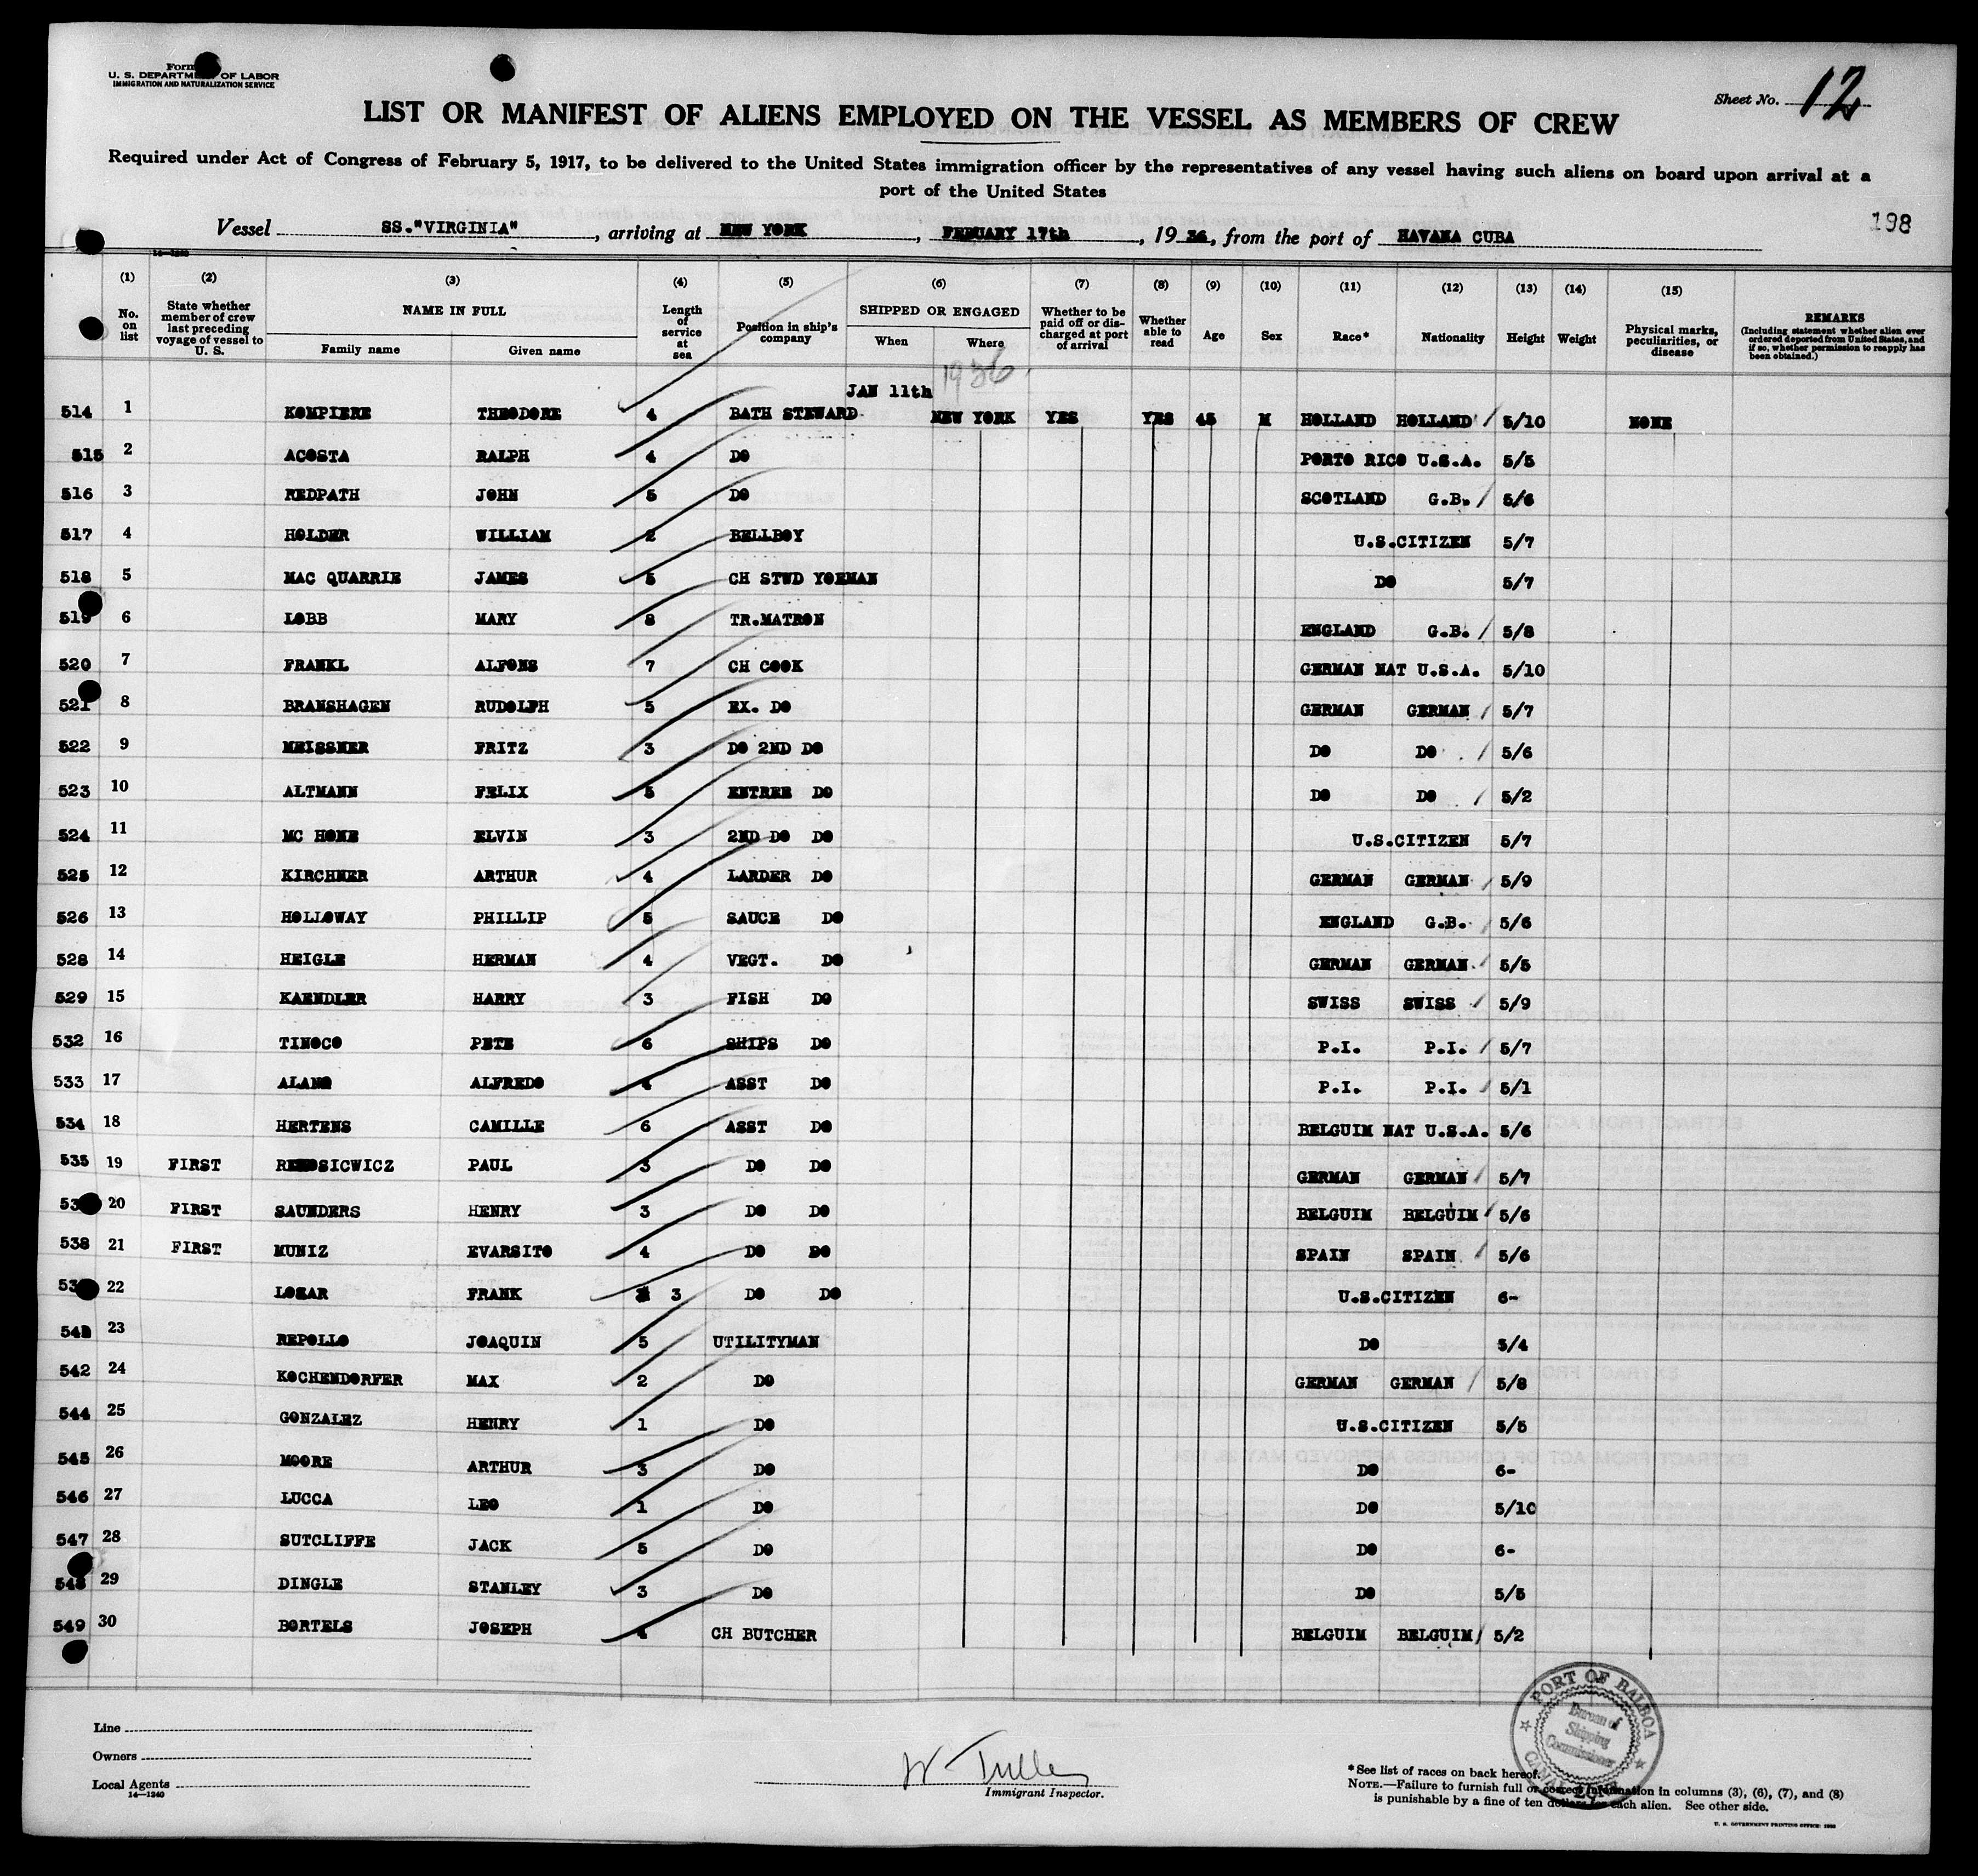 Form
U. S. DEPARTMENT OF LABOR
IMMIGRATION AND NATURALIZATION SERVICE
Sheet No. 12
LIST OR MANIFEST OF ALIENS EMPLOYED ON THE VESSEL AS MEMBERS OF CREW
Required under Act of Congress of February 5, 1917, to be delivered to the United States immigration officer by the representatives of any vessel having such aliens on board upon arrival at a
port of the United States
198
Vessel SS."VIRGINIA", arriving at NEW YORK, FEBUARY 17th, 1936, from the port of HAVANA CUBA
14—1240
(1) (2) (3) (4) (5) (6) (7) (8) (9) (10) (11) (12) (13) (14) (15)
No. on list State whether member of crew last preceding voyage of vessel to U. S. NAME IN FULL Family name Given name Length of service at sea Position in ship's company SHIPPED OR ENGAGED When Where Whether to be paid off or discharged at port of arrival Whether able to read Age Sex Race* Nationality Height Weight Physical marks, peculiarities, or disease REMARKS (Including statement whether alien ever ordered deported from United States, and if so, whether permission to reapply has been obtained.)
JAN 11th 1936
514 1 KOMPIERE THEODORE 4 BATH STEWARD NEW YORK YES YES 45 M HOLLAND HOLLAND 5/10 NONE
515 2 ACOSTA RALPH 4 DO PORTO RICO U.S.A. 5/5
516 3 REDPATH JOHN 5 DO SCOTLAND G.B. 5/6
517 4 HOLDER WILLIAM 2 BELLBOY U.S.CITIZEN 5/7
518 5 MAC QUARRIE JAMES 5 CH STWD YOEMAN DO 5/7
519 6 LOBB MARY 8 TR.MATRON ENGLAND G.B. 5/8
520 7 FRANKL ALFONS 7 CH COOK GERMAN NAT U.S.A. 5/10
521 8 BRANSHAGEN RUDOLPH 5 EX. DO GERMAN GERMAN 5/7
522 9 MEISSNER FRITZ 3 DO 2ND DO DO DO 5/6
523 10 ALTMANN FELIX 5 ENTREE DO DO DO 5/2
524 11 MC HONE ELVIN 3 2ND DO DO U.S.CITIZEN 5/7
525 12 KIRCHNER ARTHUR 4 LARDER DO GERMAN GERMAN 5/9
526 13 HOLLOWAY PHILLIP 5 SAUCE DO ENGLAND G.B. 5/6
528 14 HEIGLE HERMAN 4 VEGT. DO GERMAN GERMAN 5/5
529 15 KAENDLER HARRY 3 FISH DO SWISS SWISS 5/9
532 16 TINOCO PETE 6 SHIPS DO P.I. P.I. 5/7
533 17 ALANO ALFREDO 4 ASST DO P.I. P.I. 5/1
534 18 HERTENS CAMILLE 6 ASST DO BELGUIM NAT U.S.A. 5/6
535 19 FIRST PAUL 3 DO DO GERMAN GERMAN 5/7
53 20 FIRST SAUNDERS HENRY 3 DO DO BELGUIM BELGUIM 5/6
538 21 FIRST MUNIZ EVARSITO 4 DO DO SPAIN SPAIN 5/6
53 22 LOSAR FRANK 3 DO DO U.S.CITIZEN 6-
23 REPOLLO JOAQUIN 5 UTILITYMAN DO 5/4
542 24 KOCHENDORFER MAX 2 DO GERMAN GERMAN 5/8
544 25 GONZALEZ HENRY 1 DO U.S.CITIZEN 5/5
545 26 MOORE ARTHUR 3 DO DO 6-
546 27 LUCCA LEO 1 DO DO 5/10
547 28 SUTCLIFFE JACK 5 DO DO 6-
548 29 DINGLE STANLEY 3 DO DO 5/5
549 30 BORTELS JOSEPH 4 CH BUTCHER BELGUIM BELGUIM 5/2
PORT OF BALBOA
Bureau of
Shipping
Commissioner
Line
Owners
Local Agents
14—1240
W Tuller
Immigrant Inspector.
*See list of races on back hereof.
NOTE.—Failure to furnish full or correct information in columns (3), (6), (7), and (8)
is punishable by a fine of ten dollars for each alien. See other side.